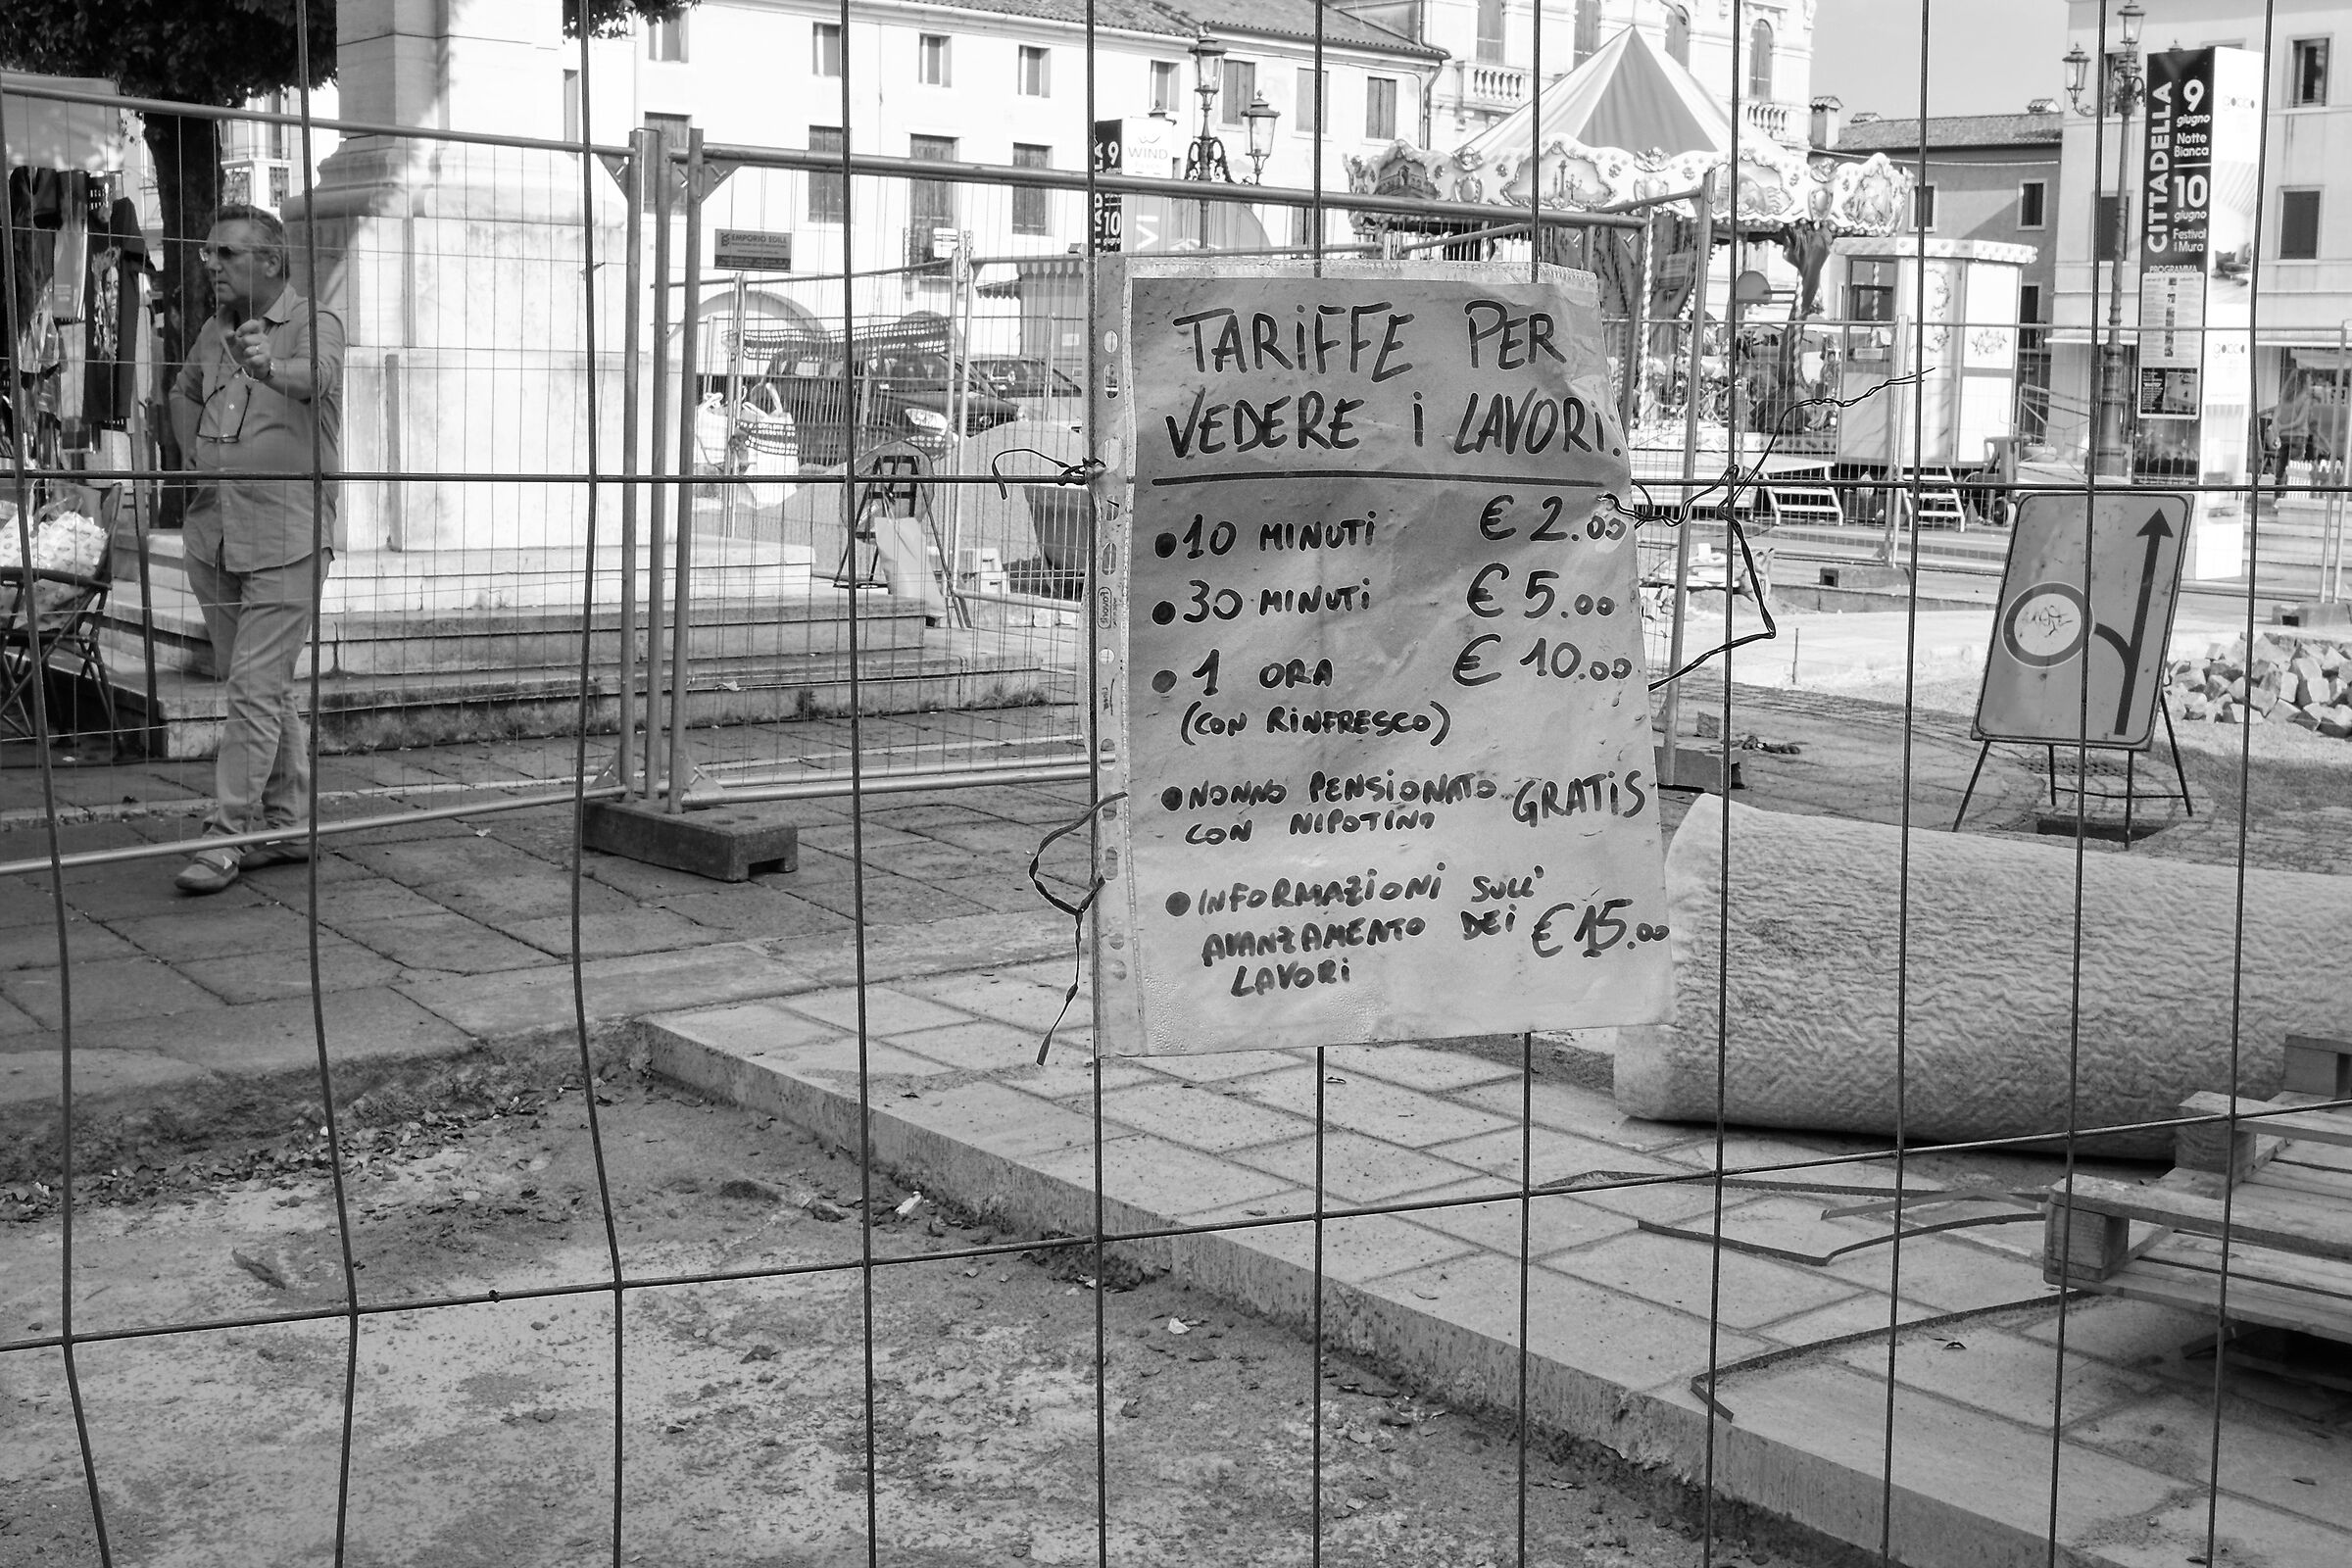 TARIFFE PER
VEDERE I LAVORI:
• 10 MINUTI € 2.00
• 30 MINUTI € 5.00
• 1 ORA € 10.00
(CON RINFRESCO)
• NONNO PENSIONATO GRATIS
CON NIPOTINO
• INFORMAZIONI SULL'
AVANZAMENTO DEI € 15.00
LAVORI
CITTADELLA
9
giugno
Notte
Bianca
10
giugno
Festival
PROGRAMMA
WIND
9
10
EMPORIO EDILE
gocce